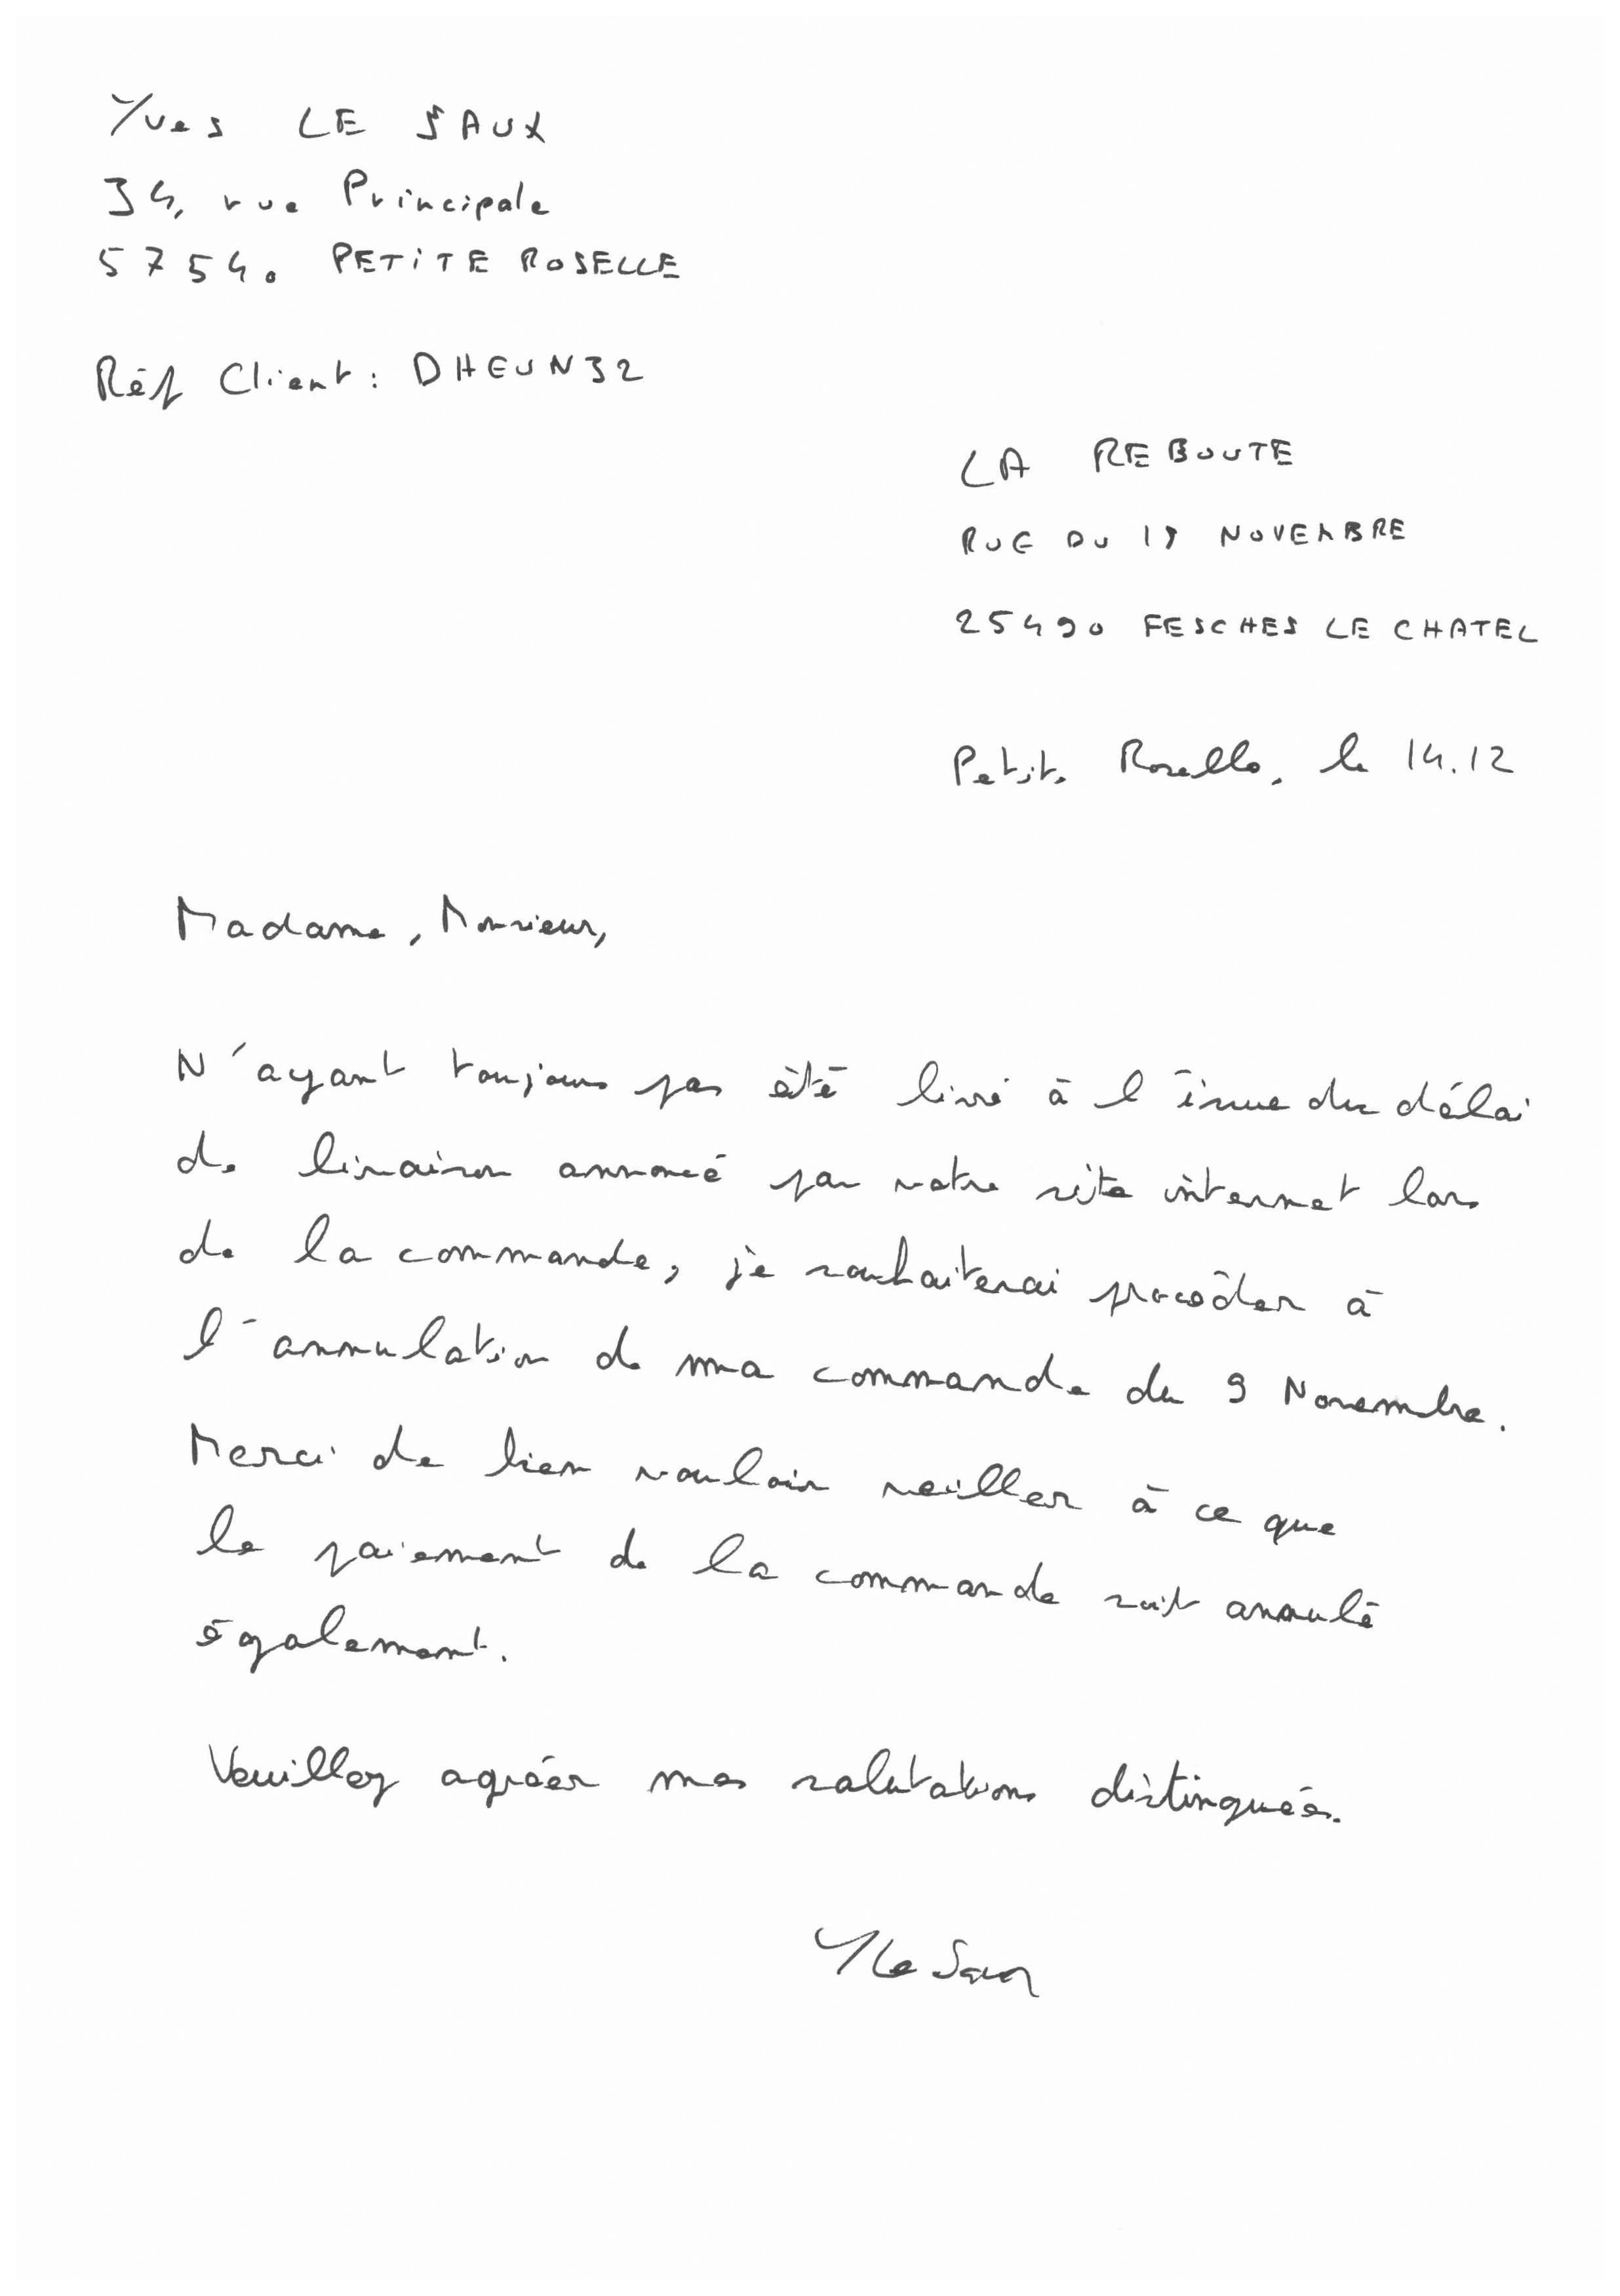 Yves LE SAUX
34, rue Principale
57540 PETITE ROSELLE
Réf Client : DHEUN32
LA REBOUTE
RUE DU 17 NOVEMBRE
25490 FESCHES LE CHATEL
Petite Roselle, le 14.12
Madame, Monsieur,
N'ayant toujours pas été livré à l'issue du délai
de livraison annoncé par votre site internet lors
de la commande, je souhaiterai procéder à
l'annulation de ma commande du 9 Novembre.
Merci de bien vouloir veiller à ce que
le paiement de la commande soit annulé
également.
Veuillez agréer mes salutations distinguées.
Y Le Saux